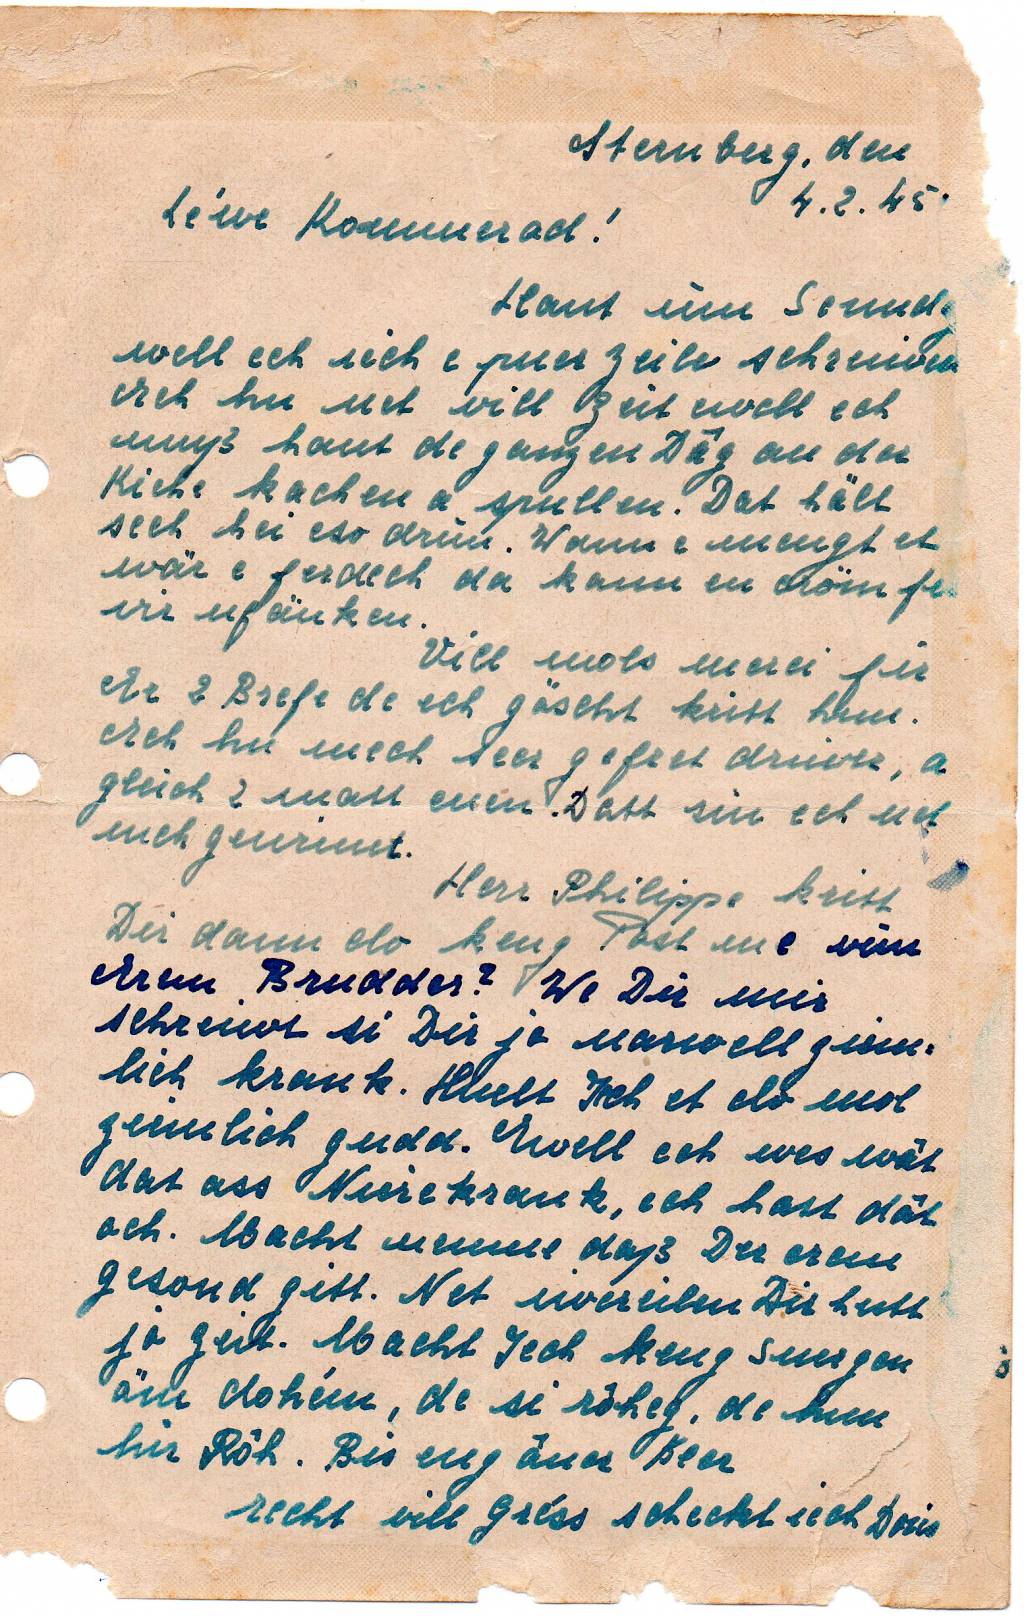 Sternberg, den
4.2.45.
Léiwe Kommerad!
Haut um Sonndg
well ech iech e puer Zeile schreiwen
Ech hu net vill Zeit well ech
muß haut de ganzen Dag an der
Kiche kachen a spullen. Dat hält
sech hei eso drun. Wann e mengt et
wär e ferdech da kann en eröm fu
vir ufänken.
Vill mols merci fir
Är 2 Brefe de ech göscht kritt hun.
Ech hu mech seer gefret driwer, a
gleich 2 matt enen. Datt sin ech net
mech gewinnt.
Herr Philippe kritt
Dir dann do keng Post me vun
Ärem Brudder? We Dir mir
schreiwt si Dir jo marwell zim-
lich krank. Huelt Iech et do mol
zeimlich gudd. Ewell ech wes wät
dat ass Nierekrank, ech hatt dät
och. Macht nemme daß Der erem
gesond gitt. Net iwereilen Dir hutt
jo Zeit. Macht Iech keng Suergen
öm dohém, de si röheg, de hun
hir Röh. Bis eng äner Keer
recht vill Gréss scheckt iech Doris